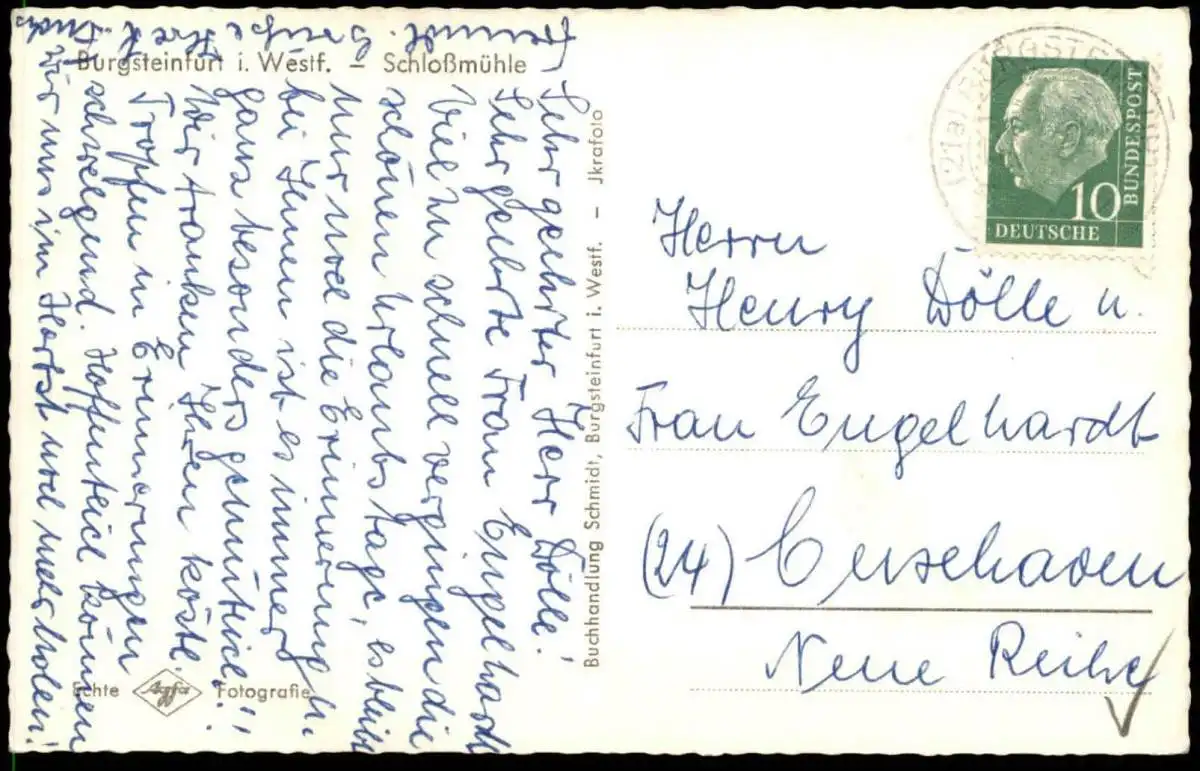 Burgsteinfurt i. Westf. – Schloßmühle
Sehr geehrter Herr Dölle!
Sehr geehrte Frau Engelhardt
Viel zu schnell vergingen die
schönen Urlaubstage, es bleibt
nur noch die Erinnerung.
bei Ihnen ist es immer
ganz besonders gemütlich!!
Wir tranken Ihren köstl.
Tropfen in Erinnerungen
schwelgend. Hoffentlich können
wir uns im Herbst
freundl. Grüße
Buchhandlung Schmidt, Burgsteinfurt i. Westf. – Jkrafoto
Echte Agfa Fotografie
BURGSTEINFURT
(21a)
BUNDESPOST
10
DEUTSCHE
Herrn
Henry Dölle u.
Frau Engelhardt
(24) Cuxhaven
Neue Reihe